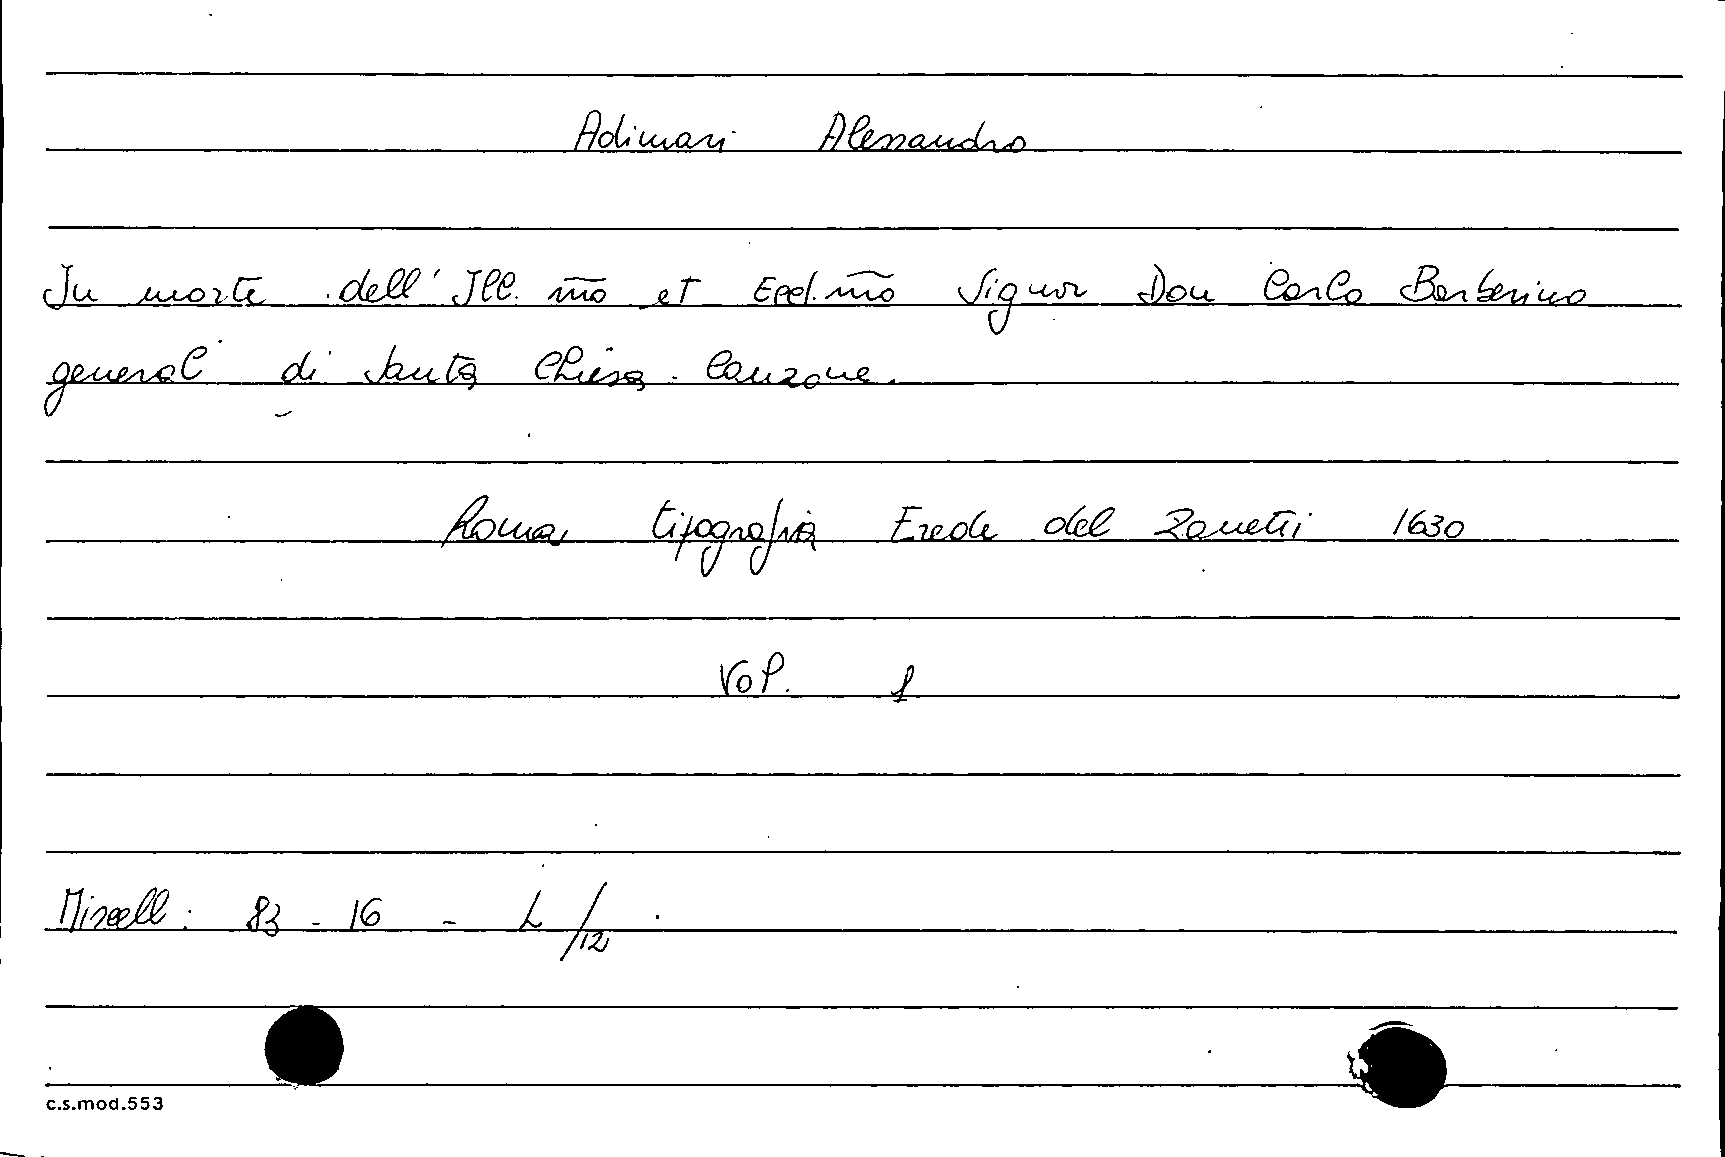 Adimari Alessandro
In morte dell' Ill. m̃o et Eccl. m̃o Signor Don Carlo Barberino
general di Santa Chiesa. Canzone.
Roma, tipografia Erede del Zanetti 1630
Vol. 1
Miscell: 83 - 16 - L/12
c.s.mod.553